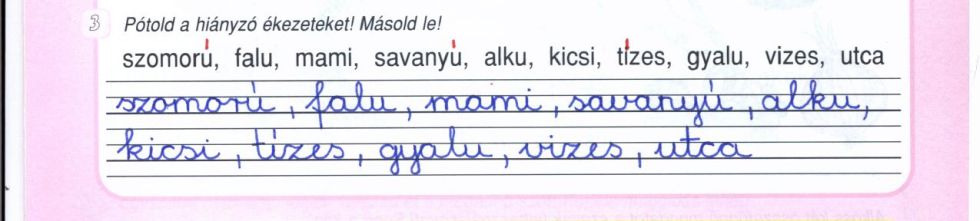 3 Pótold a hiányzó ékezeteket! Másold le!
szomorú, falu, mami, savanyú, alku, kicsi, tízes, gyalu, vizes, utca
szomorú, falu, mami, savanyú, alku,
kicsi, tízes, gyalu, vizes, utca